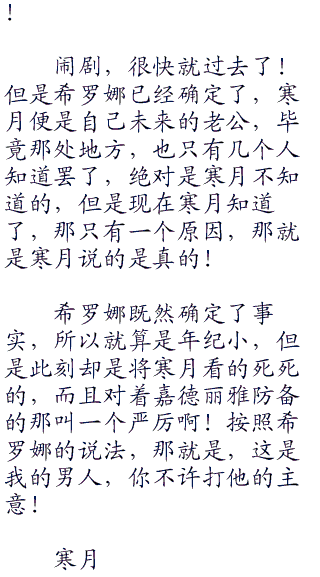 ！
闹剧，很快就过去了！
但是希罗娜已经确定了，寒
月便是自己未来的老公，毕
竟那处地方，也只有几个人
知道罢了，绝对是寒月不知
道的，但是现在寒月知道
了，那只有一个原因，那就
是寒月说的是真的！
希罗娜既然确定了事
实，所以就算是年纪小，但
是此刻却是将寒月看的死死
的，而且对着嘉德丽雅防备
的那叫一个严厉啊！按照希
罗娜的说法，那就是，这是
我的男人，你不许打他的主
意！
寒月